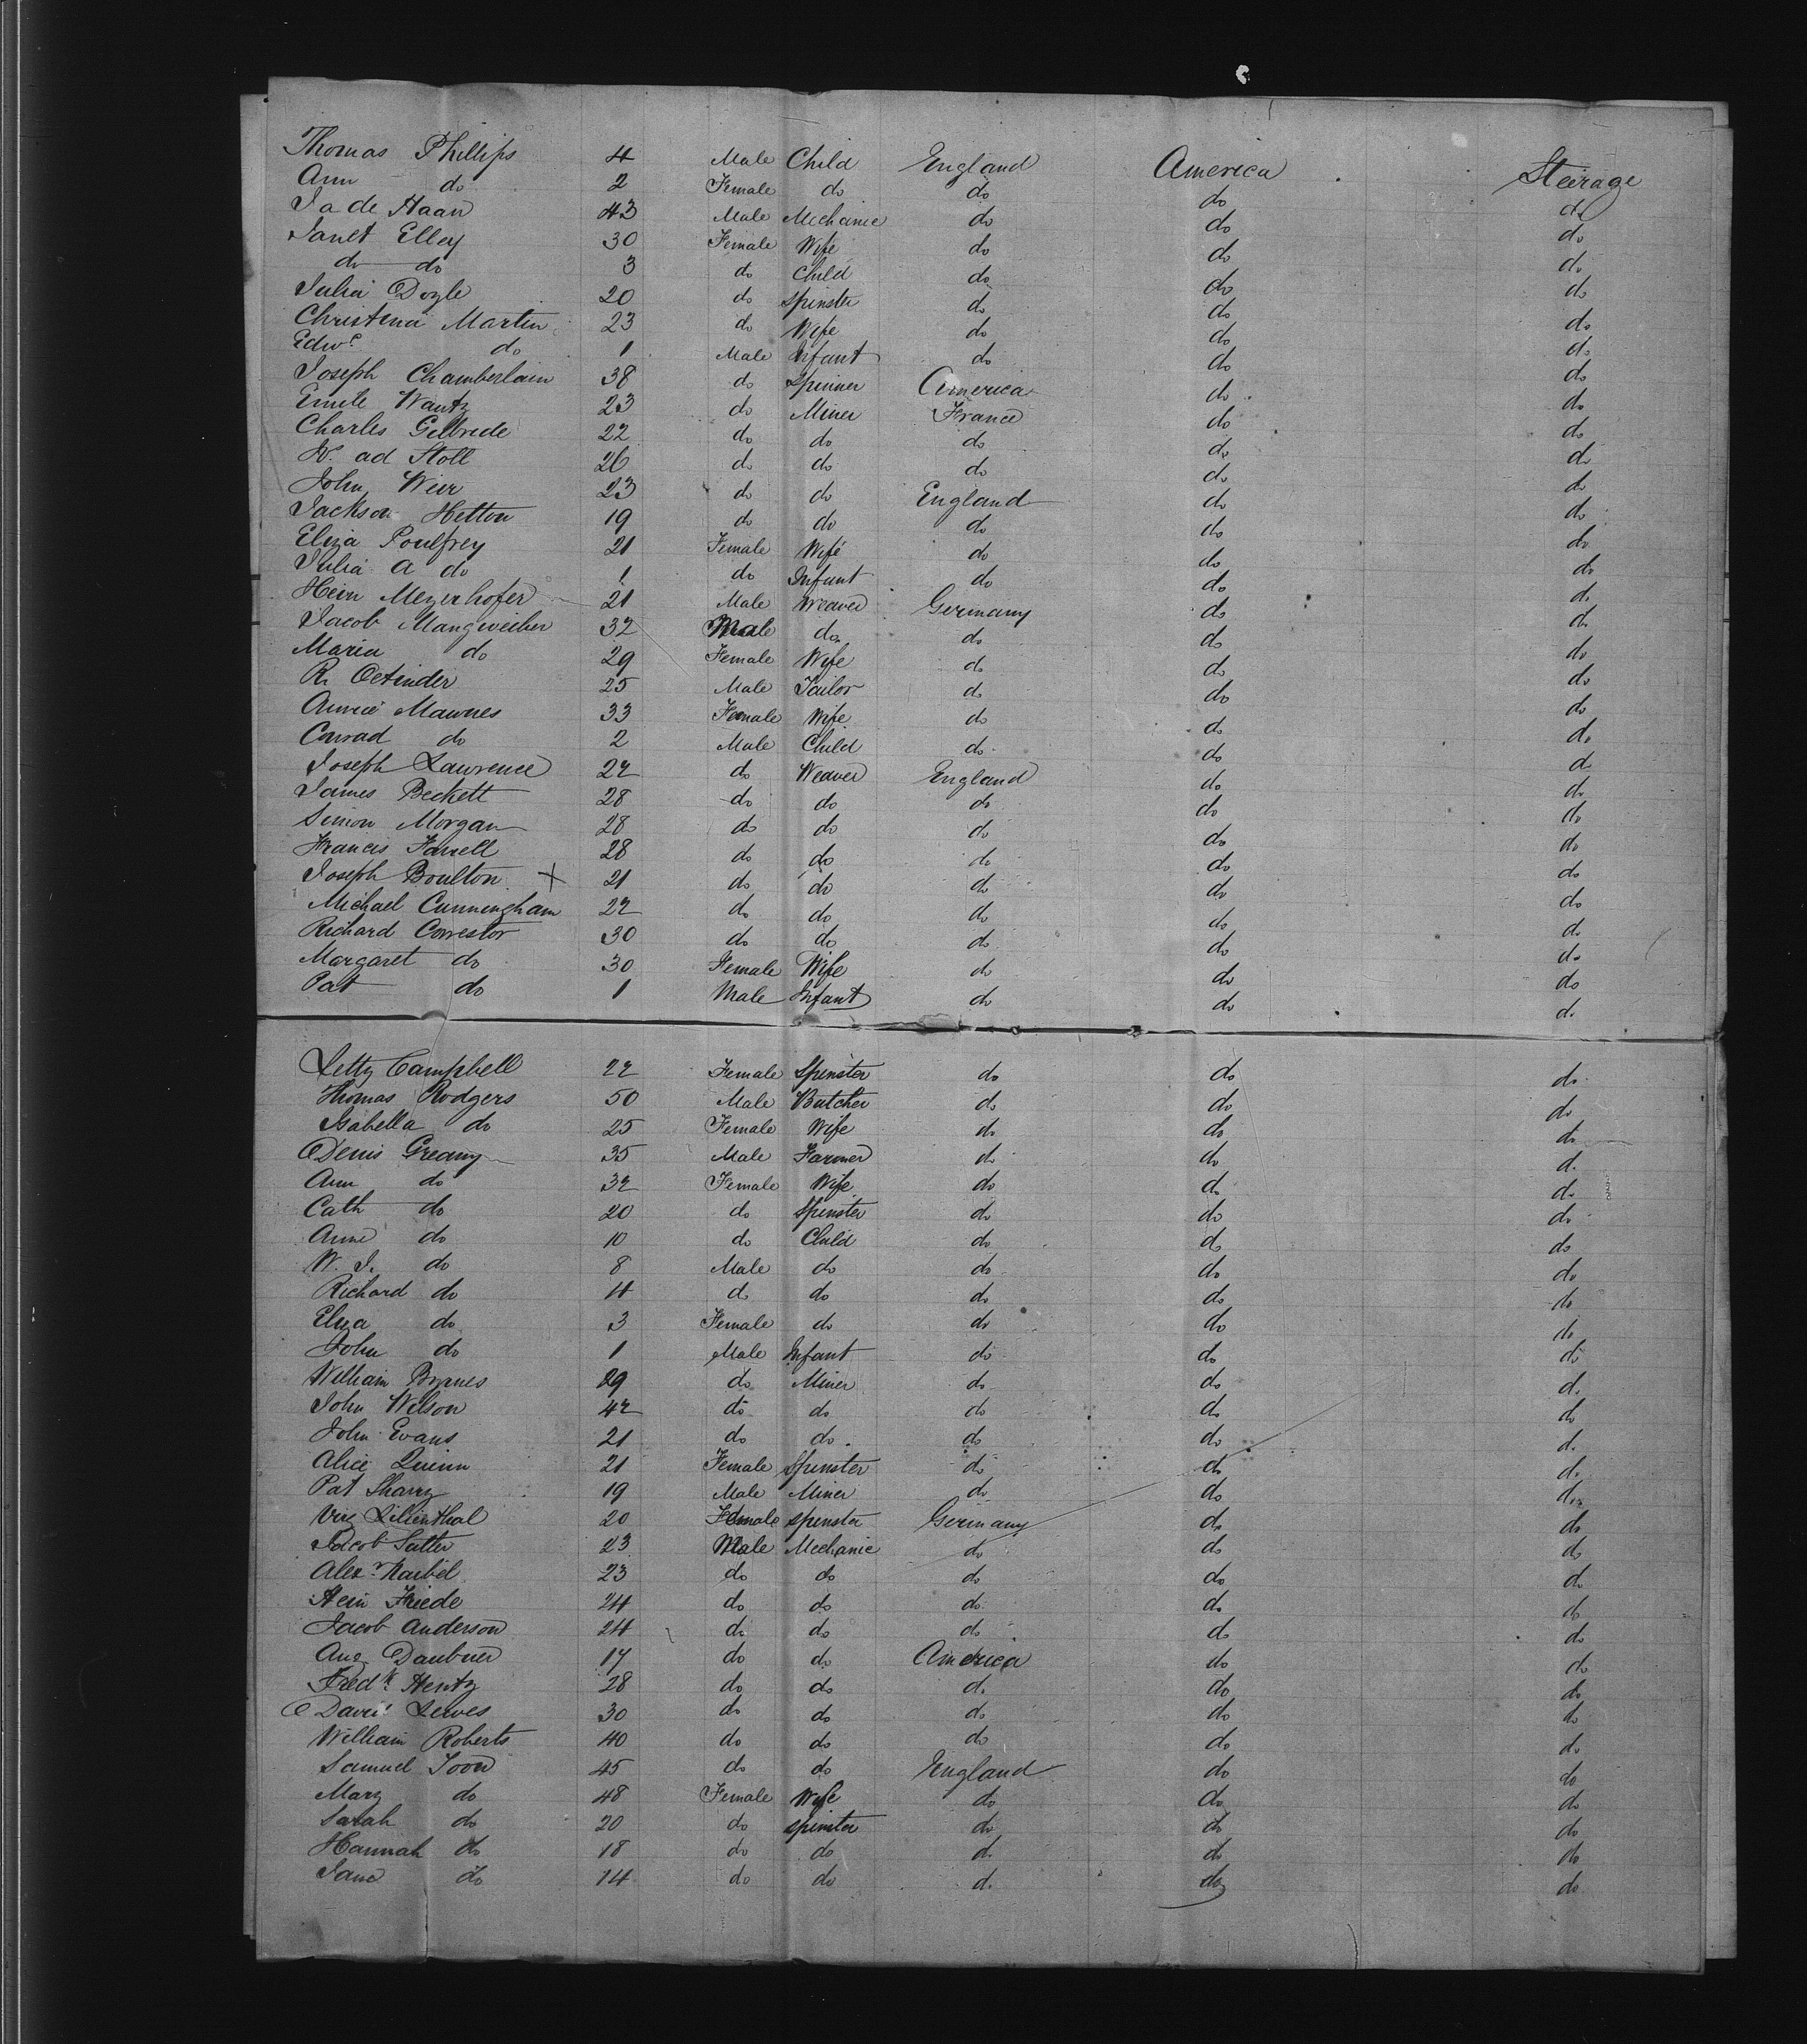 Thomas Phillips 4 Male Child England America Steirage
Ann do 2 Female do do do do
J a de Haan 43 Male Mechanic do do do
Janet Elley 30 Female Wife do do do
do do 3 do Child do do do
Julia Doyle 20 do Spinster do do do
Christina Martin 23 do Wife do do do
Edwd do 1 Male Infant do do do
Joseph Chamberlain 38 do Spinner America do do
Emile Wautz 23 do Miner France do do
Charles Gelbrede 22 do do do do do
W. ad Stoll 26 do do do do do
John Weir 23 do do England do do
Jackson Hetton 19 do do do do do
Eliza Poulfrey 21 Female Wife do do do
Julia A do 1 do Infant do do do
Hein Meyerhofer 21 Male Weaver Germany do do
Jacob Mangweiher 32 Male do do do do
Maria do 29 Female Wife do do do
R. Oetinder 25 Male Tailor do do do
Annie Mawnes 33 Female Wife do do do
Conrad do 2 Male Child do do do
Joseph Lawrence 22 do Weaver England do do
James Beckett 28 do do do do do
Simon Morgan 28 do do do do do
Francis Farrell 28 do do do do do
Joseph Boulton X 21 do do do do do
Michael Cunningham 22 do do do do do
Richard Correstor 30 do do do do do
Margaret do 30 Female Wife do do do
Pat do 1 Male Infant do do do
Letty Campbell 22 Female Spinster do do do
Thomas Rodgers 50 Male Butcher do do do
Isabella do 25 Female Wife do do do
Denis Greany 35 Male Farmer do do do
Ann do 32 Female Wife do do do
Cath do 20 do Spinster do do do
Anne do 10 do Child do do do
W. J. do 8 Male do do do do
Richard do 4 do do do do do
Eliza do 3 Female do do do do
John do 1 Male Infant do do do
William Byrnes 29 do Miner do do do
John Wilson 42 do do do do do
John Evans 21 do do do do do
Alice Quinn 21 Female Spinster do do do
Pat Sharry 19 Male Miner do do do
Virg Lilienthal 20 Female Spinster Germany do do
Jacob Sutter 23 Male Mechanic do do do
Alexr Naibel 23 do do do do do
Hein Friede 24 do do do do do
Jacob Anderson 24 do do do do do
Aug Daubner 17 do do America do do
Fredk Hentz 28 do do do do do
David Lewes 30 do do do do do
William Roberts 40 do do do do do
Samuel Toon 45 do do England do do
Mary do 48 Female Wife do do do
Sarah do 20 do Spinster do do do
Hannah do 18 do do do do do
Jane do 14 do do do do do